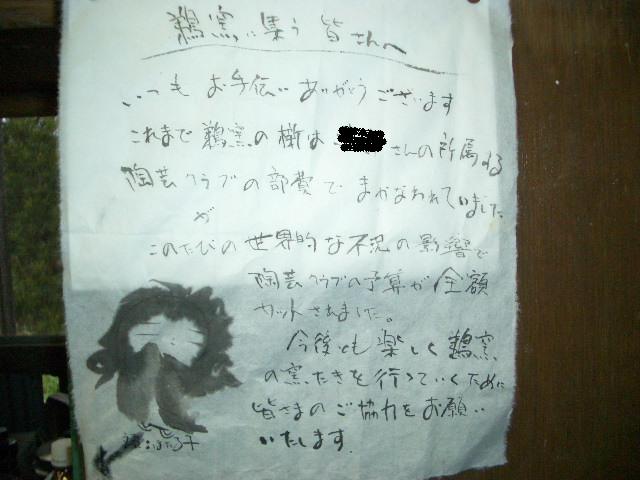 鵜窯に集う皆さんへ
いつもお手伝いありがとうございます
これまで鵜窯の薪は さんの所属する
陶芸クラブの部費でまかなわれていました
が
このたびの世界的な不況の影響で
陶芸クラブの予算が全額
カットされました。
今後とも楽しく鵜窯
の窯たきを行っていくために
皆さまのご協力をお願い
いたします